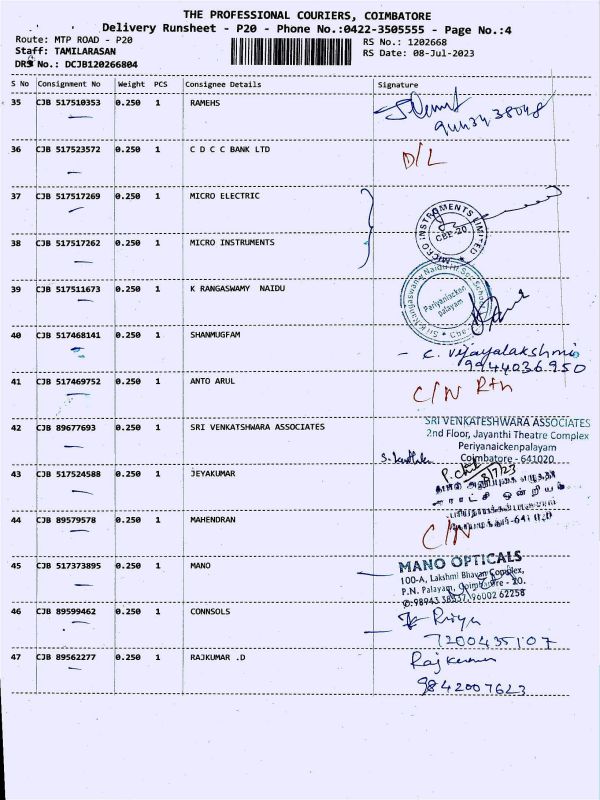 THE PROFESSIONAL COURIERS, COIMBATORE
Delivery Runsheet - P20 - Phone No.:0422-3505555 - Page No.:4
Route: MTP ROAD - P20
RS No.: 1202668
Staff: TAMILARASAN
RS Date: 08-Jul-2023
DRS No.: DCJB120266804
S No Consignment No Weight PCS Consignee Details Signature
35 CJB 517510353 0.250 1 RAMEHS
36 CJB 517523572 0.250 1 C D C C BANK LTD D/L
37 CJB 517517269 0.250 1 MICRO ELECTRIC
MICRO INSTRUMENTS LIMITED
CBE-20
38 CJB 517517262 0.250 1 MICRO INSTRUMENTS
39 CJB 517511673 0.250 1 K RANGASWAMY NAIDU
Periyanaicken
palayam
40 CJB 517468141 0.250 1 SHANMUGFAM
- C. Vijayalakshmi
9944036950
41 CJB 517469752 0.250 1 ANTO ARUL C/N Rtn
42 CJB 89677693 0.250 1 SRI VENKATSHWARA ASSOCIATES
SRI VENKATESHWARA ASSOCIATES
2nd Floor, Jayanthi Theatre Complex
Periyanaickenpalayam
Coimbatore - 641020
43 CJB 517524588 0.250 1 JEYAKUMAR
8/7/23
44 CJB 89579578 0.250 1 MAHENDRAN C/N
45 CJB 517373895 0.250 1 MANO
MANO OPTICALS
100-A, Lakshmi Bhavan Complex,
P.N. Palayam, Coimbatore - 20.
✆:98943 38537, 96002 62258
46 CJB 89599462 0.250 1 CONNSOLS
Priya
7200435107
47 CJB 89562277 0.250 1 RAJKUMAR .D
Rajkumar
9842007623